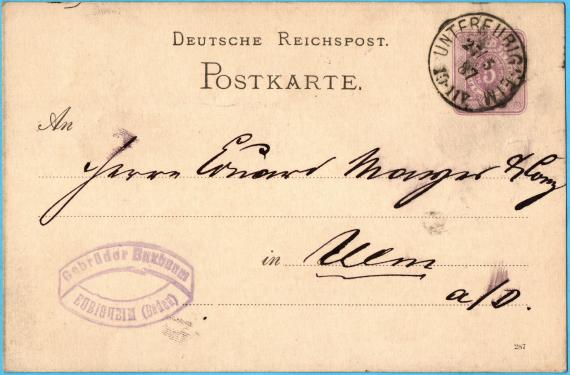 DEUTSCHE REICHSPOST.
POSTKARTE.
UNTEREUBIGHEIM
5
An
Herrn Eduard Mayer &
in Ulm
a/D.
Gebrüder Buxbaum
EUBIGHEIM (Baden)
287